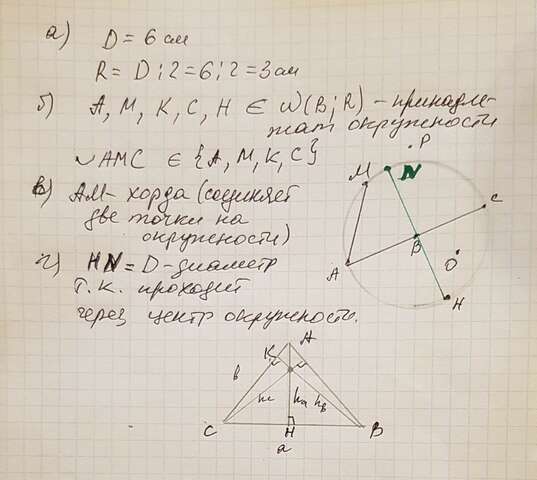 а) D = 6 см
R = D : 2 = 6 : 2 = 3 см
б) А, М, К, С, Н ∈ W(B; R) – принадле-
жат окружности
◡AMC ∈ {A, M, K, C}
в) AM – хорда (соединяет
две точки на
окружности)
г) HN = D – диаметр
т.к. проходит
через центр окружности.
P
M
N
C
B
A
O
H
A
K
в
hа
hв
C
H
B
a